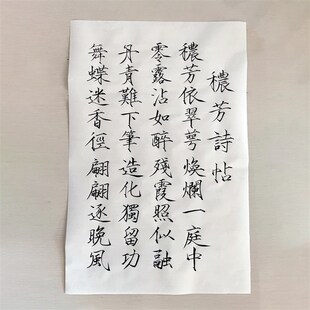 穠芳詩帖
穠芳依翠萼煥爛一庭中
零露沾如醉殘霞照似融
丹青難下筆造化獨留功
舞蝶迷香徑翩翩逐晚風